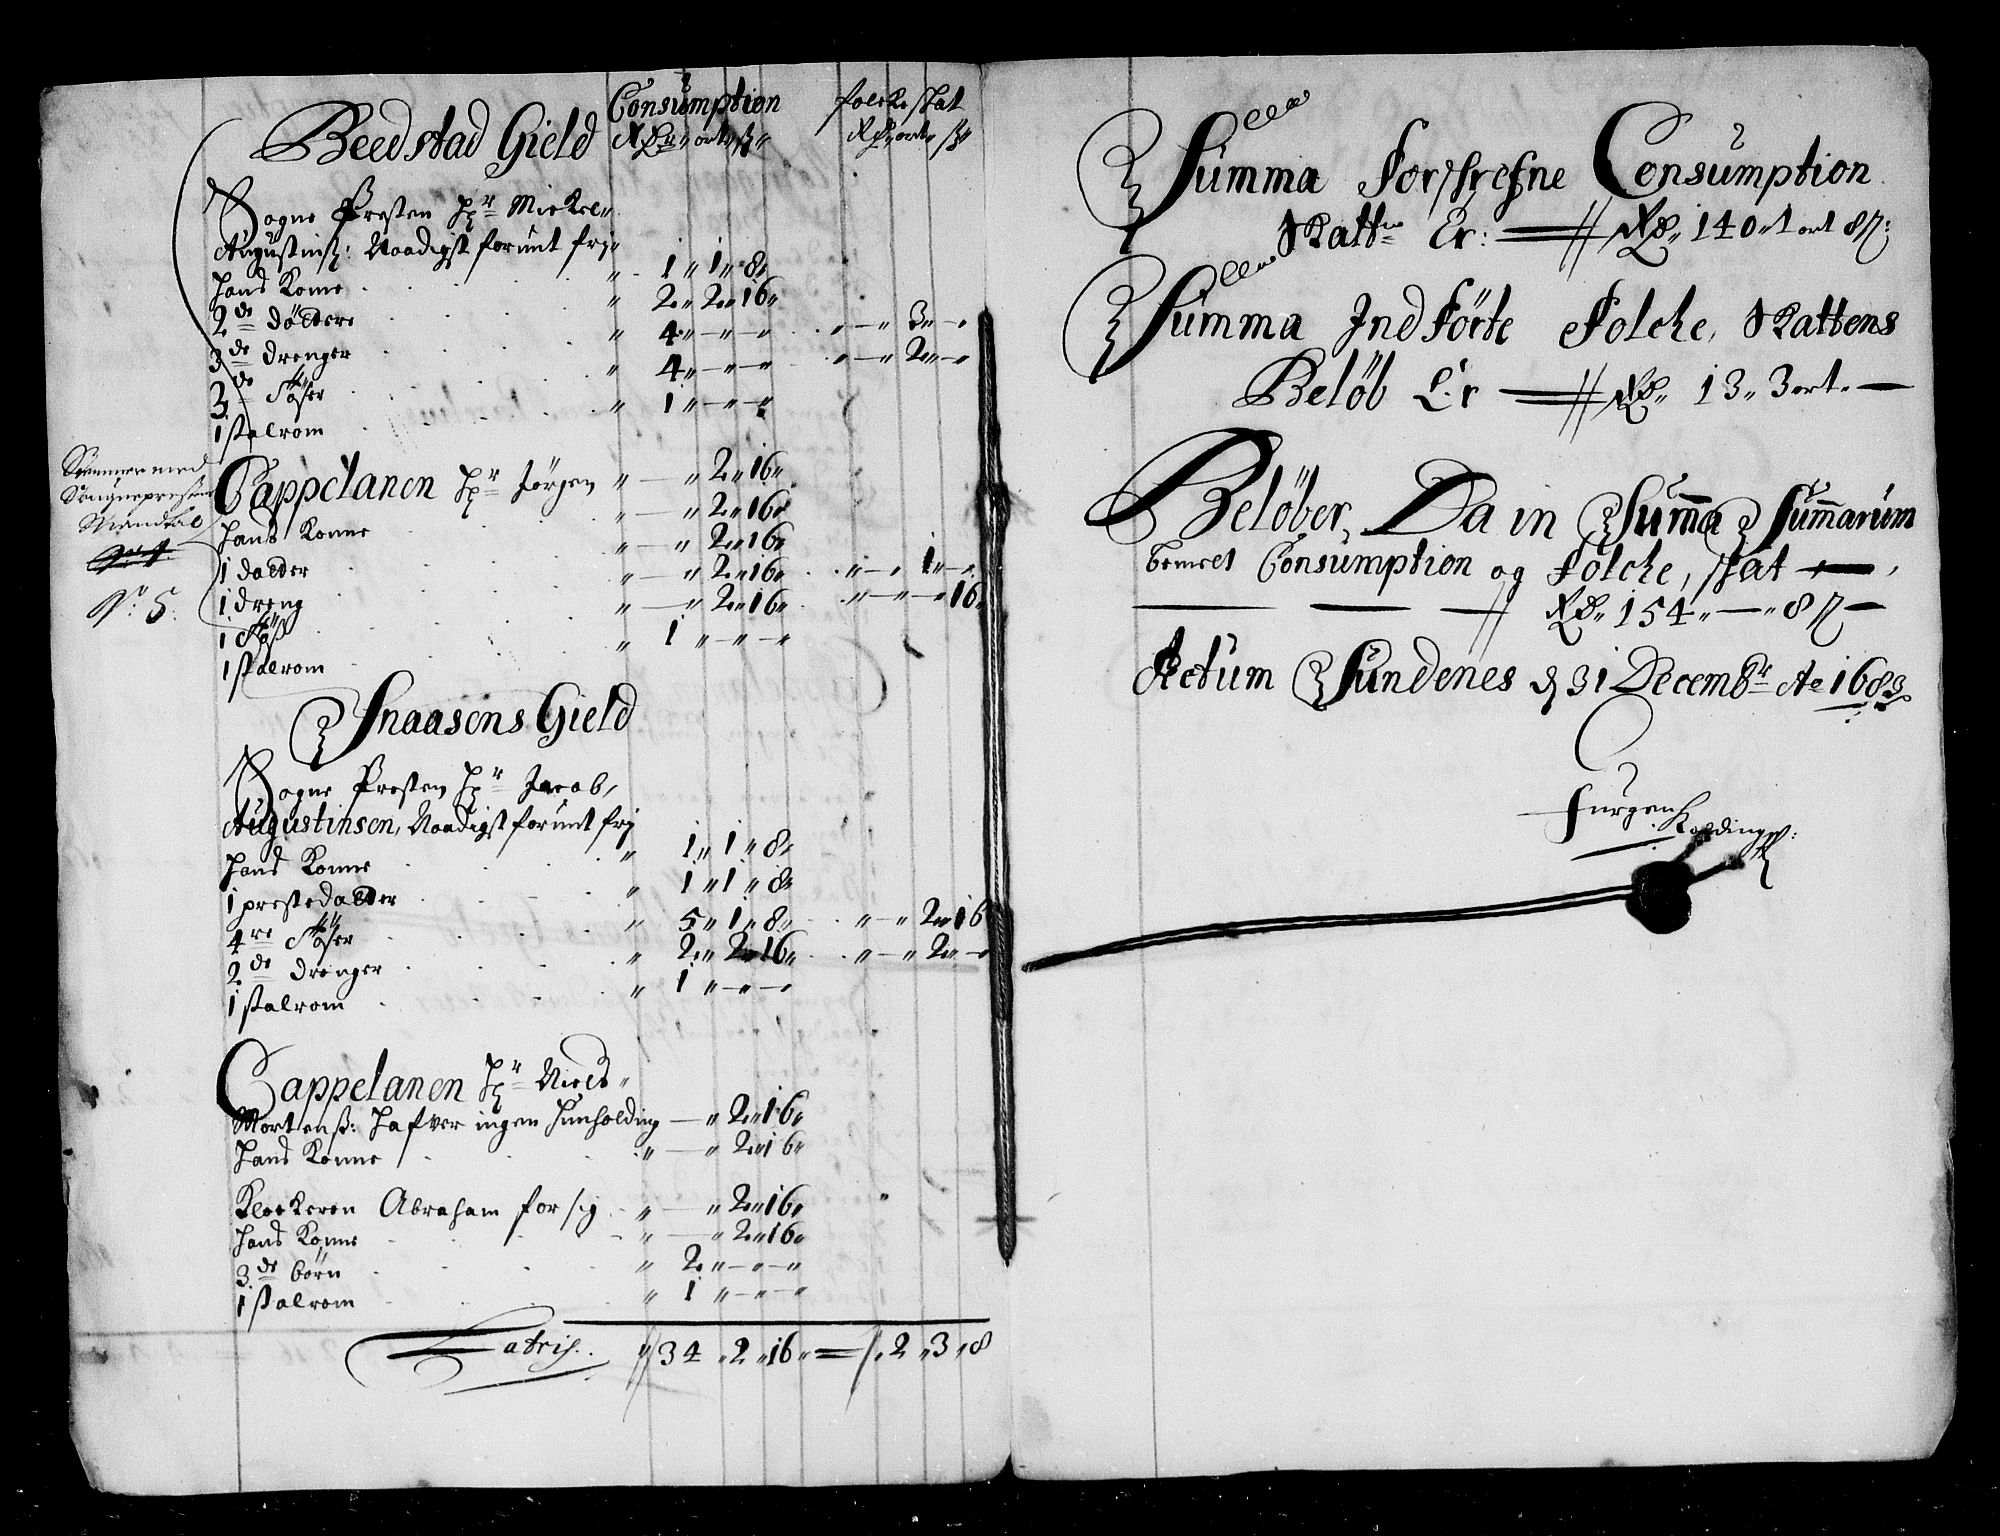 Beedstad Gield Consumption folcke skat
Rdr „ ort „ ß „ Rd „ ort „ ß „
Sogne Presten Hr Mickel
Augustinß: Naadigst forunt frj
Hans Konne „ 1 „ 1 „ 8 „
2de dötter „ 2 „ 2 „ 16 „
3de drenger „ 4 „ — „ — „ „ — „ 3 „ —
3de Tøser „ 4 „ — „ — „ „ — „ 2 „ —
1 stalrom „ 1 „ — „ — „
Cappelanen Hr Jörgen „ — „ 2 „ 16 „
Hans Konne „ — „ 2 „ 16 „
1 datter „ — „ 2 „ 16 „
1 dreng „ — „ 2 „ 16 „ „ — „ 1 „ —
1 Tøß „ — „ 2 „ 16 „ „ — „ — „ 16 „
1 stalrom „ 1 „ — „ —
Stemmer med
Sougneprestens
Mandtal
No 5.
Snaasens Gield
Sogne Presten Hr Jacob
Augustinsen, Naadigst forunt frj
Hans Konne „ 1 „ 1 „ 8 „
1 preste datter „ 1 „ 1 „ 8 „
4re Tøser „ 5 „ 1 „ 8 „ „ — „ 2 „ 16
2de drenger „ 2 „ 2 „ 16 „ „ — „ 2 „ —
1 stalrom „ 1 „ — „ —
Cappelanen Hr Niels
Mortenß: Hafver ingen Hunholding — „ 2 „ 16 „
Hans Konne „ — „ 2 „ 16 „
Klockeren Abraham for sig „ — „ 2 „ 16 „
Hans Konne „ — „ 2 „ 16 „
3de börn „ 2 „ — „ —
1 stalrom „ 1 „ — „ —
Latris. 34 „ 2 „ 16 „ 2 „ 3 „ 8
Summa Forskrefne Consumption
Skatten Er: Rd „ 140 „ 1 ort 8 ß:
Summa Indförte Folcke, Skattens
Belöb Er Rd „ 13 „ 3 ort „ —
Belöber, Da in Summa Summarum
bemelt Consumption og Folcke, skat
Rd „ 154 „ — „ 8 ß —
Actum Sundenes d 31 Decembr Ao 1683
Jurgen
Koldings: